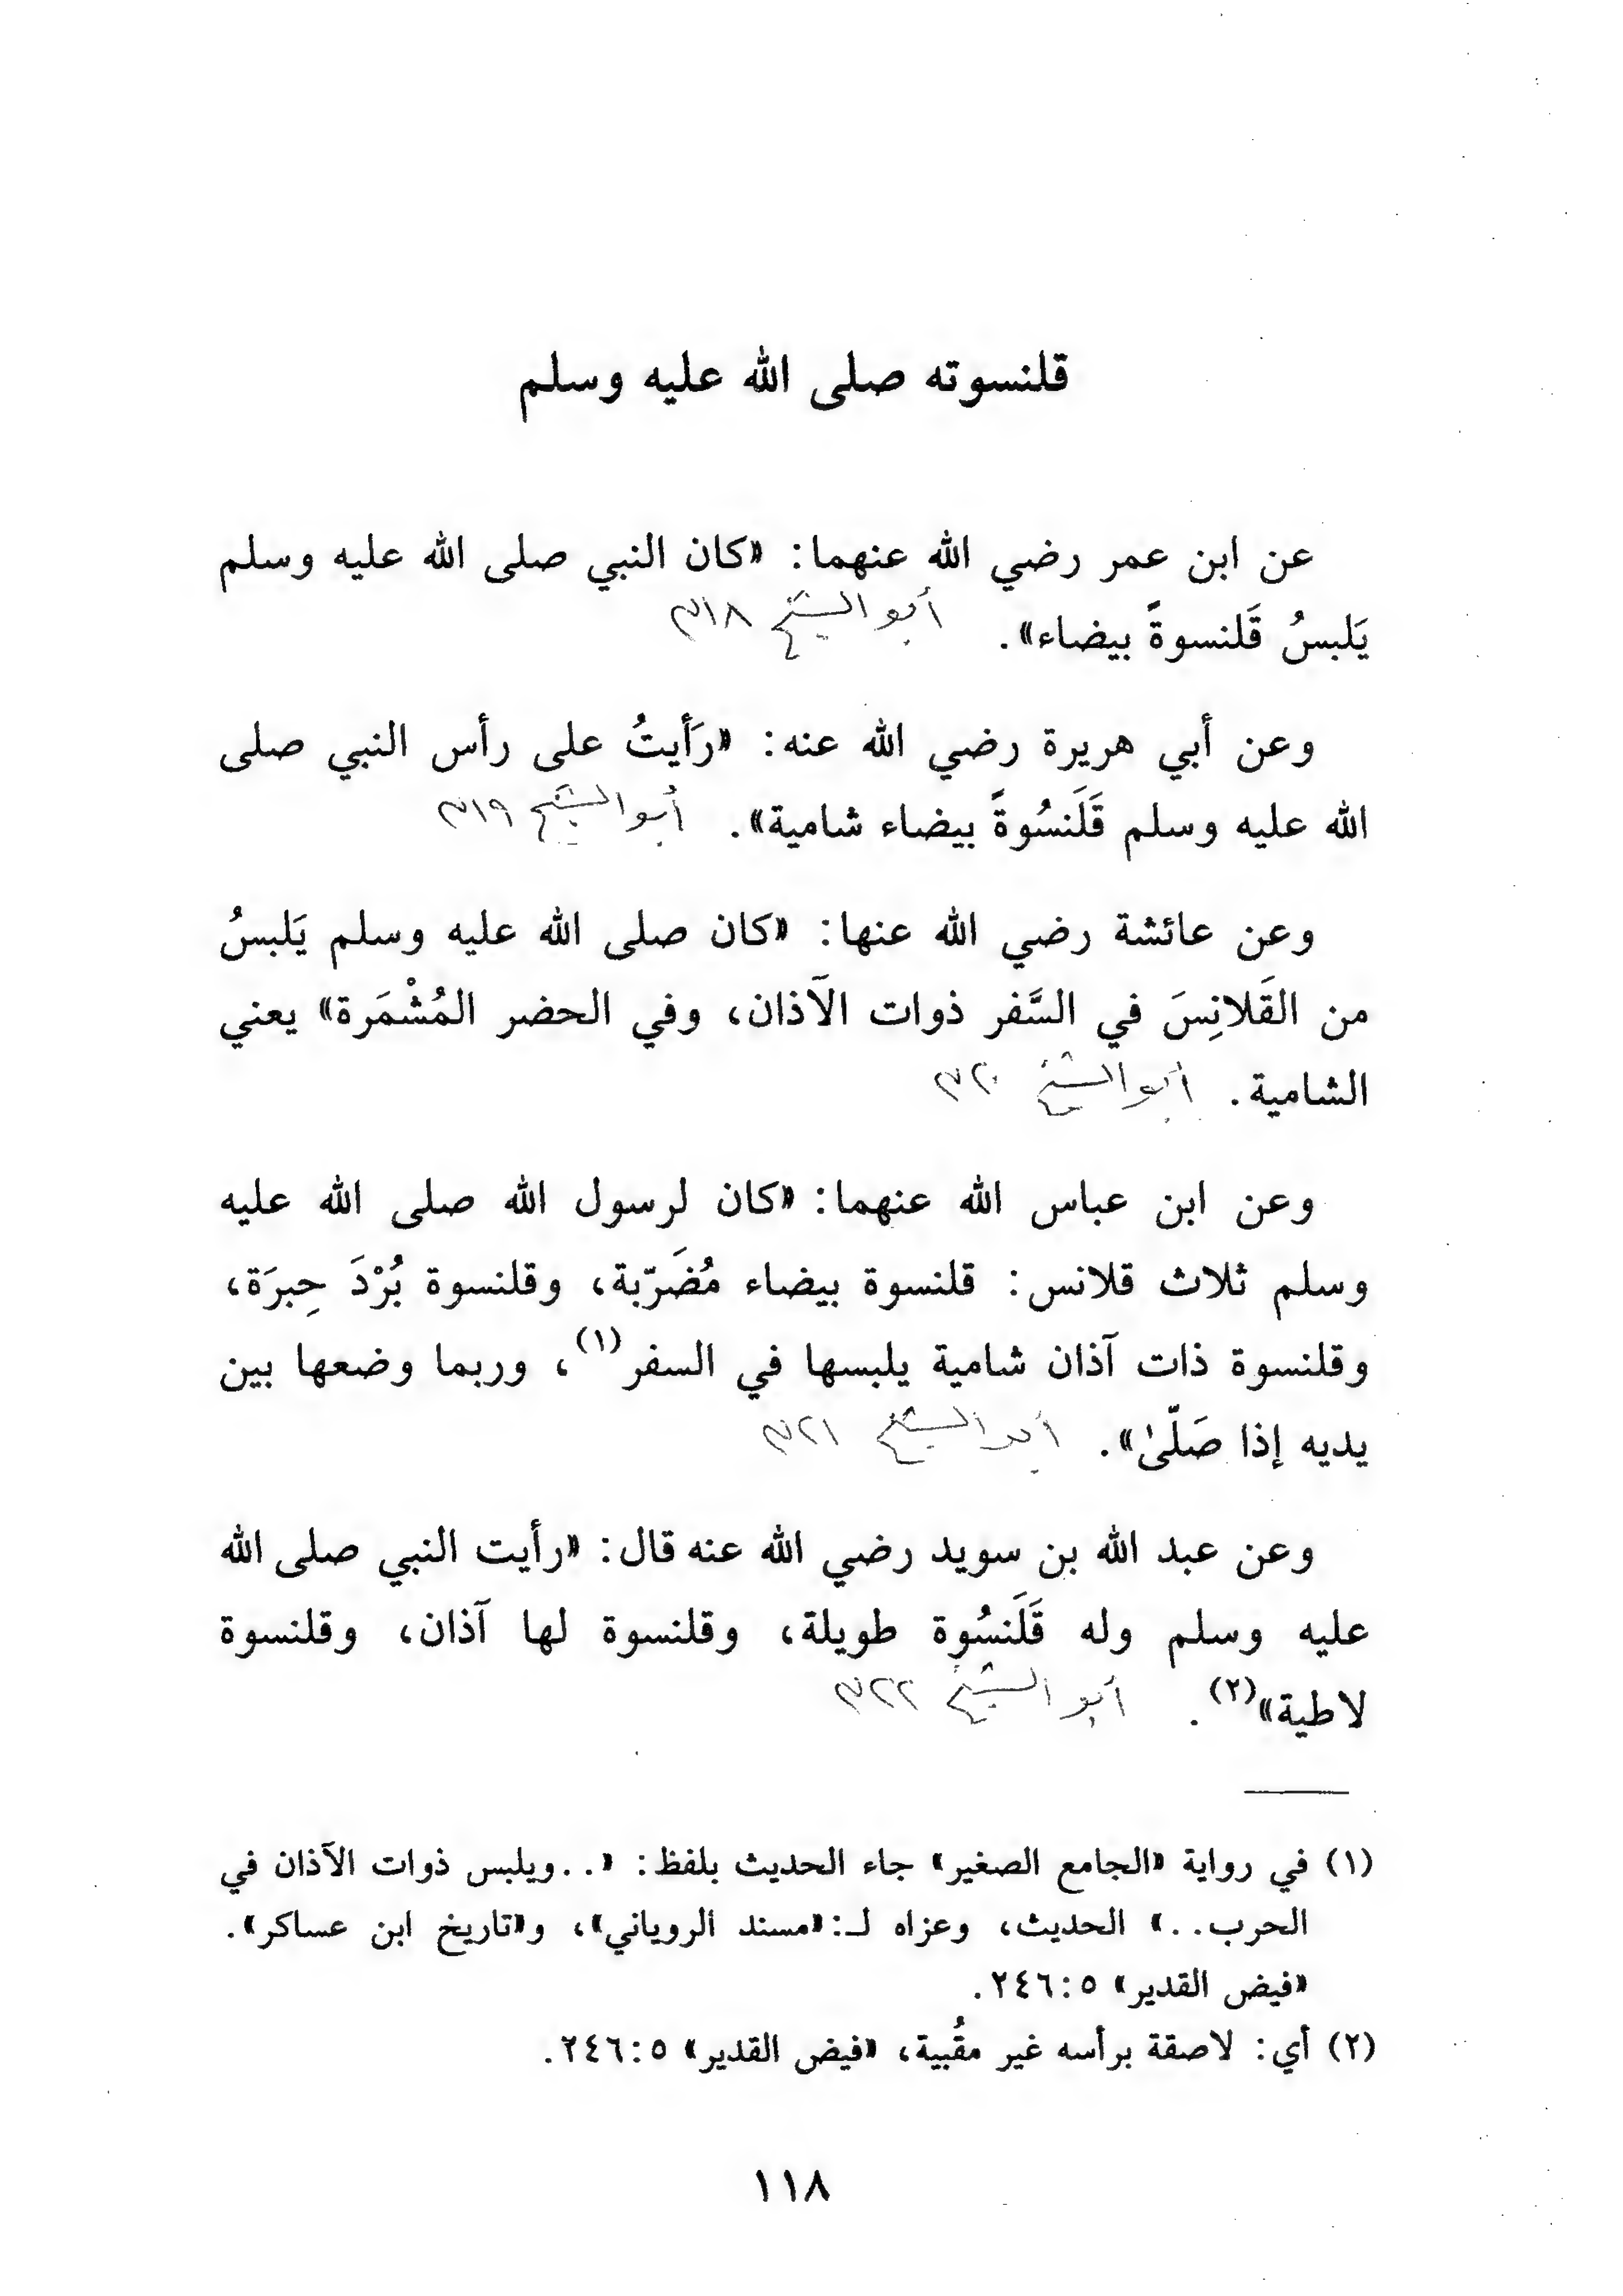 قلنسوته صلى الله عليه وسلم
عن ابن عمر رضي الله عنهما: «كان النبي صلى الله عليه وسلم
يَلبسُ قَلنسوةً بيضاء». أبو الشيخ ٣١٨
وعن أبي هريرة رضي الله عنه: «رَأَيتُ على رأس النبي صلى
الله عليه وسلم قَلَنسُوةً بيضاء شامية». أبو الشيخ ٣١٩
وعن عائشة رضي الله عنها: «كان صلى الله عليه وسلم يَلبسُ
من القَلانِسَ في السَّفر ذوات الآذان، وفي الحضر المُشْمَرة» يعني
الشامية. أبو الشيخ ٣٢٠
وعن ابن عباس الله عنهما: «كان لرسول الله صلى الله عليه
وسلم ثلاث قلانس: قلنسوة بيضاء مُضَرّبة، وقلنسوة بُرْدَ حِبرَة،
وقلنسوة ذات آذان شامية يلبسها في السفر(١)، وربما وضعها بين
يديه إذا صَلّىٰ». أبو الشيخ ٣٢١
وعن عبد الله بن سويد رضي الله عنه قال: «رأيت النبي صلى الله
عليه وسلم وله قَلَنسُوة طويلة، وقلنسوة لها آذان، وقلنسوة
لاطية»(٢). أبو الشيخ ٣٢٢
(١) في رواية «الجامع الصغير» جاء الحديث بلفظ: «..ويلبس ذوات الآذان في
الحرب..» الحديث، وعزاه لـ:«مسند الروياني»، و«تاريخ ابن عساكر».
«فيض القدير» ٥:٢٤٦.
(٢) أي: لاصقة برأسه غير مقُبية، «فيض القدير» ٥:٢٤٦.
١١٨